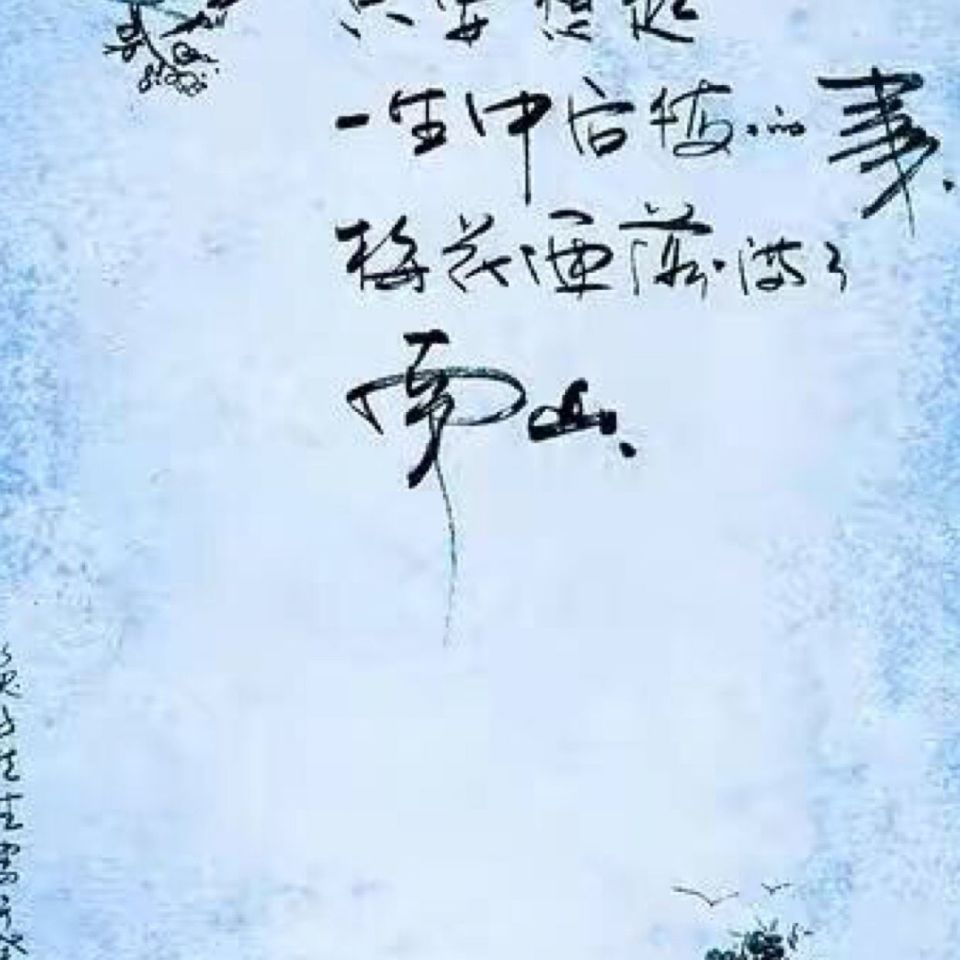 只要想起
一生中后悔的事
梅花便落满了
南山